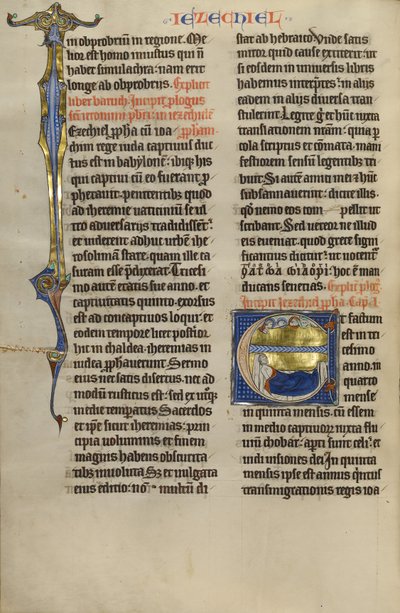 IEZECHIEL
in obprobriū in regione. Me
lioz est homo iustus qui n̄
haber simulachra: nam erit
longe ab obprobrijs. Explicit
liber baruch. Incipit plogus
sc̄i ieronimi pb̄ri in iezechielē
Ezechiel ꝓpha cū ioa pphām.
chim rege iuda captiuus duc
tus est in babylonē: ibiqȝ his
qui captiui cū eo fuerant ꝓ
phetauit. penitentibȝ quod
ad iheremie vaticiniū se vl
tro aduersarijs tradidissent.
et viderent adhuc vrbē ihe
rosolimā stare. quam ille ca
suram esse p̄dixerat. Tricesi
mo autē etatis sue anno. et
captiuitatis quinto. exorsus
est ad concaptiuos loqui. et
eodem tempore licet posterior
hic in chaldea. iheremias in
iudea ꝓphauerunt. Sermo
eius nec satis disertus. nec ad
modū rusticus est: sed ex vtroqȝ
medie temperatus. Sacerdos
et ip̄e sicut iheremias: prin
cipia voluminis et finem
magnis habens obscuritа
tibȝ inuoluta. Sȝ et vulgata
eius editio: nō multū di
stat ab hebraico. Vnde satis
miror quid cause extiterit. ut
si eosdem in vniuersis libris
habemus interp̄tes: in alijs
eadem in alijs diuersa tran
stulerint. Legite gͦ et hūc iuxta
translationem nr̄am: quia ꝑ
cola scriptus et cōmata. mani
festiorem sensū legentibȝ tri
buit. Si autē amici mei et hūc
subsannauerint: dicite illis.
qͦd nemo eos com pellit ut
scribant. Sed vereor ne illud
eis eueniat. quod grece signi
ficantius dicitur: ut uocentur
hoc ē man
ducans senecias. Explic plog
Incipit Iezechiel ꝓpha. Cap. I.
Et factum
est in tri
cesimo
anno. in
quarto
mense
in quinta mensis. cū essem
in medio captiuorum iuxta flu
uiū chobar: aꝑti sunt celi: et
uidi visiones dei. In quinta
mensis ipse est annus quintus
transmigrationis regis ioa